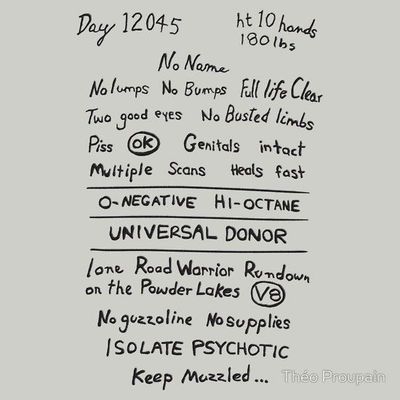 Day 12045
ht 10 hands
180 lbs
No Name
No lumps No Bumps Full life Clear
Two good eyes No Busted limbs
Piss OK Genitals intact
Multiple Scans Heals fast
O-NEGATIVE HI-OCTANE
UNIVERSAL DONOR
lone Road Warrior Rundown
on the Powder Lakes V8
No guzzoline No supplies
ISOLATE PSYCHOTIC
Keep Muzzled...
Théo Proupain